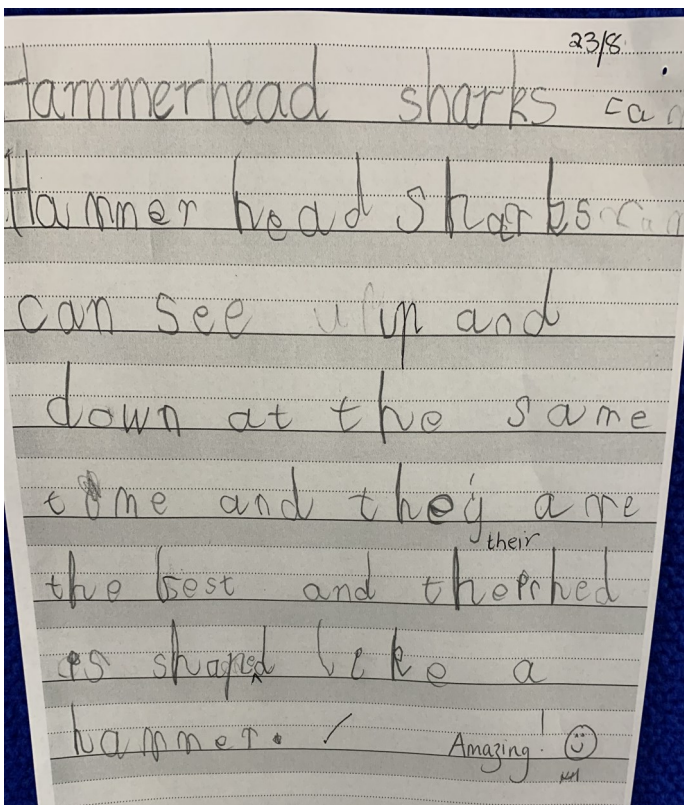 23/8
Hammerhead sharks can
Hammer head sharks can
can see up and
down at the same
time and they are
their
the best and theirhed
is shaped like a
hammer.
Amazing!